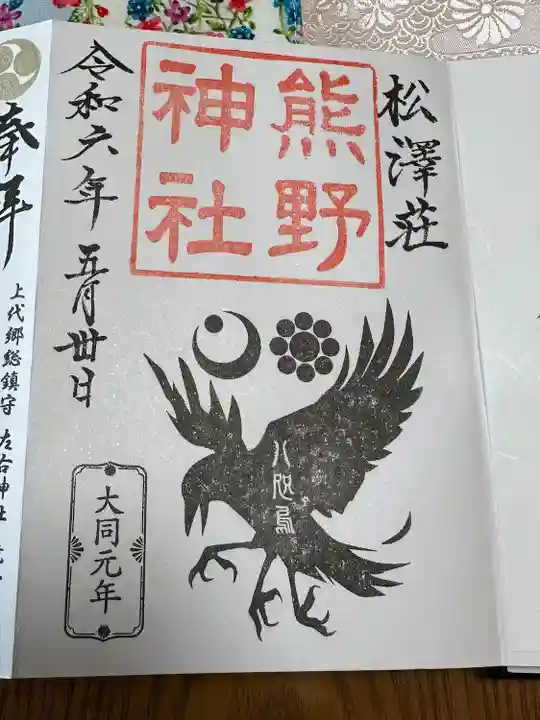 松澤荘
熊野
神社
令和六年 五月丗日
八咫烏
大同元年
奉拝
上代郷総鎮守 左右神社